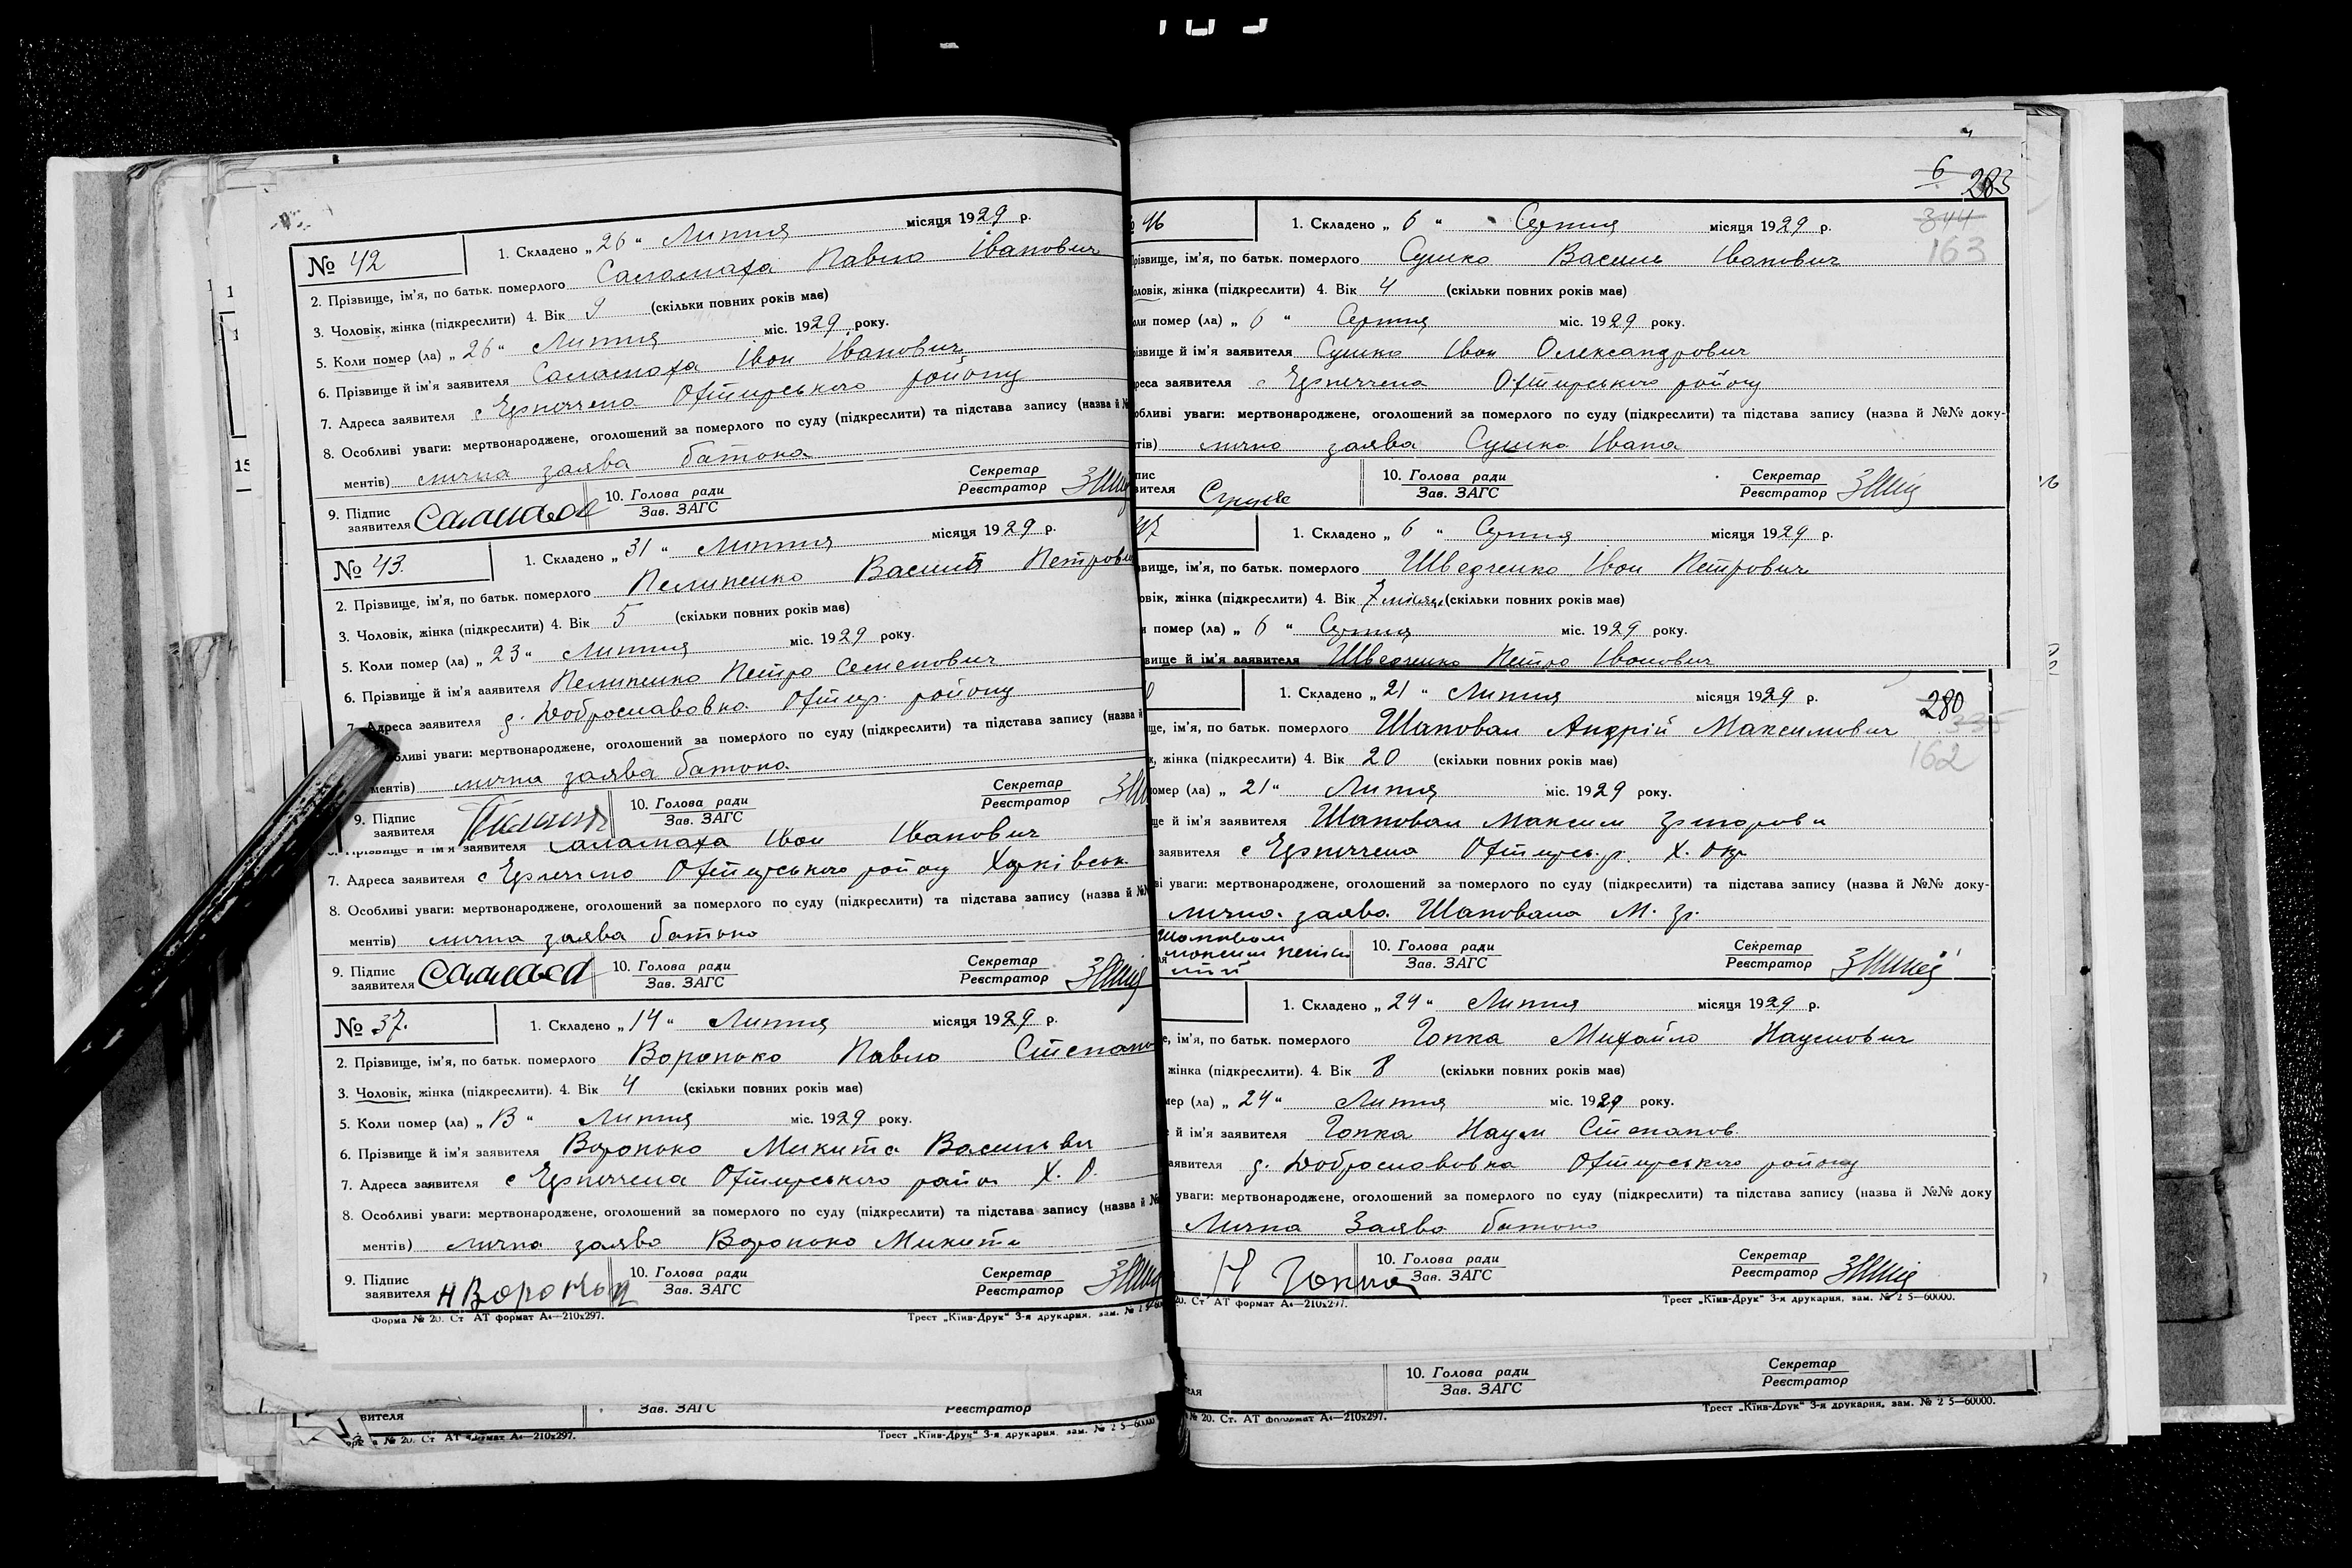 № 42
1. Складено „26“ Липня місяця 1929 р.
2. Прізвище, ім'я, по батьк. померлого Саламаха Павло Іванович
3. Чоловік, жінка (підкреслити) 4. Вік 9 (скільки повних років має)
5. Коли помер (ла) „26“ Липня міс. 1929 року.
6. Прізвище й ім'я заявителя Саламаха Іван Іванович
7. Адреса заявителя с Охтирського району
8. Особливі уваги: мертвонароджене, оголошений за померлого по суду (підкреслити) та підстава запису (назва й №
ментів) лична заява батька
9. Підпис заявителя
10. Голова ради Зав. ЗАГС
Секретар Реєстратор
№ 43.
1. Складено „31“ Липня місяця 1929 р.
2. Прізвище, ім'я, по батьк. померлого Пелипенко Василь Петрович
3. Чоловік, жінка (підкреслити) 4. Вік 5 (скільки повних років має)
5. Коли помер (ла) „23“ Липня міс. 1929 року.
6. Прізвище й ім'я заявителя Пелипенко Петро Семенович
7. Адреса заявителя д. Доброславовка Охтир. району
бливі уваги: мертвонароджене, оголошений за померлого по суду (підкреслити) та підстава запису (назва й
ментів) лична заява батька
9. Підпис заявителя
10. Голова ради Зав. ЗАГС
Секретар Реєстратор
заявителя Саламаха Іван Іванович
7. Адреса заявителя с Охтирського району Харківськ.
8. Особливі уваги: мертвонароджене, оголошений за померлого по суду (підкреслити) та підстава запису (назва й №
ментів) лична заява батька
9. Підпис заявителя
10. Голова ради Зав. ЗАГС
Секретар Реєстратор
№ 37.
1. Складено „14“ Липня місяця 1929 р.
2. Прізвище, ім'я, по батьк. померлого Воропоко Павло Степано
3. Чоловік, жінка (підкреслити). 4. Вік 4 (скільки повних років має)
5. Коли помер (ла) „ “ Липня міс. 1929 року.
6. Прізвище й ім'я заявителя Воропоко Микита Васильви
7. Адреса заявителя с Охтирського район Х. О.
8. Особливі уваги: мертвонароджене, оголошений за померлого по суду (підкреслити) та підстава запису (назва й №
ментів) лична заява Воропоко Микити
9. Підпис заявителя
10. Голова ради Зав. ЗАГС
Секретар Реєстратор
Форма № 20. Ст АТ формат А4—210х297.
Трест „Київ-Друк“ 3-я друкарня, зам. № 2 5—600
вителя
Зав. ЗАГС
Реєстратор
а № 20. Ст АТ формат А4—210х297.
Трест „Київ-Друк“ 3-я друкарня, зам. № 2 5—60000
6
283
344
163
46
1. Складено „6“ Серпня місяця 1929 р.
різвище, ім'я, по батьк. померлого Сушко Василь Іванович
оловік, жінка (підкреслити) 4. Вік 4 (скільки повних років має)
оли помер (ла) „6“ Серпня міс. 1929 року.
різвище й ім'я заявителя Сушко Іван Олександрович
реса заявителя с Охтирського району
обливі уваги: мертвонароджене, оголошений за померлого по суду (підкреслити) та підстава запису (назва й №№ доку-
тів) лично заява Сушко Івана
пис вителя
10. Голова ради Зав. ЗАГС
Секретар Реєстратор
47
1. Складено „6“ Серпня місяця 1929 р.
звище, ім'я, по батьк. померлого Шведченко Іван Петрович
овік, жінка (підкреслити) 4. Вік 7 місяц. (скільки повних років має)
и помер (ла) „6“ Серпня міс. 1929 року.
вище й ім'я заявителя Шведченко Петро Іванович
1. Складено „21“ Липня місяця 1929 р.
280
335
162
ще, ім'я, по батьк. померлого Шаповал Андрій Максимович
к, жінка (підкреслити) 4. Вік 20 (скільки повних років має)
омер (ла) „21“ Липня міс. 1929 року.
ще й ім'я заявителя Шаповал Максим Григоров
заявителя с Охтирськ. р. Х. Окр
ві уваги: мертвонароджене, оголошений за померлого по суду (підкреслити) та підстава запису (назва й №№ доку-
лична заява Шаповала М. Гр.
Шаповал максим
10. Голова ради Зав. ЗАГС
Секретар Реєстратор
1. Складено „24“ Липня місяця 1929 р.
е, ім'я, по батьк. померлого Гопка Михайло Наумович
жінка (підкреслити). 4. Вік 8 (скільки повних років має)
мер (ла) „24“ Липня міс. 1929 року.
й ім'я заявителя Гопка Наум Степанов.
аявителя д. Доброславовка Охтирського району
уваги: мертвонароджене, оголошений за померлого по суду (підкреслити) та підстава запису (назва й №№ доку
Лична Заява батька
Н Гопка
10. Голова ради Зав. ЗАГС
Секретар Реєстратор
20. Ст АТ формат А4—210х297.
Трест „Київ-Друк“ 3-я друкарня, зам. № 2 5—60000.
10. Голова ради Зав. ЗАГС
Секретар Реєстратор
№ 20. Ст. АТ формат А4—210х297.
Трест „Київ-Друк“ 3-я друкарня, зам. № 2 5—60000.